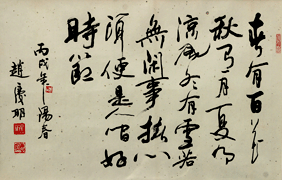 春有百花
秋有月夏有
涼風冬有雪若
無閑事掛心
頭便是人間好
時節
丙戌年陽春
趙明